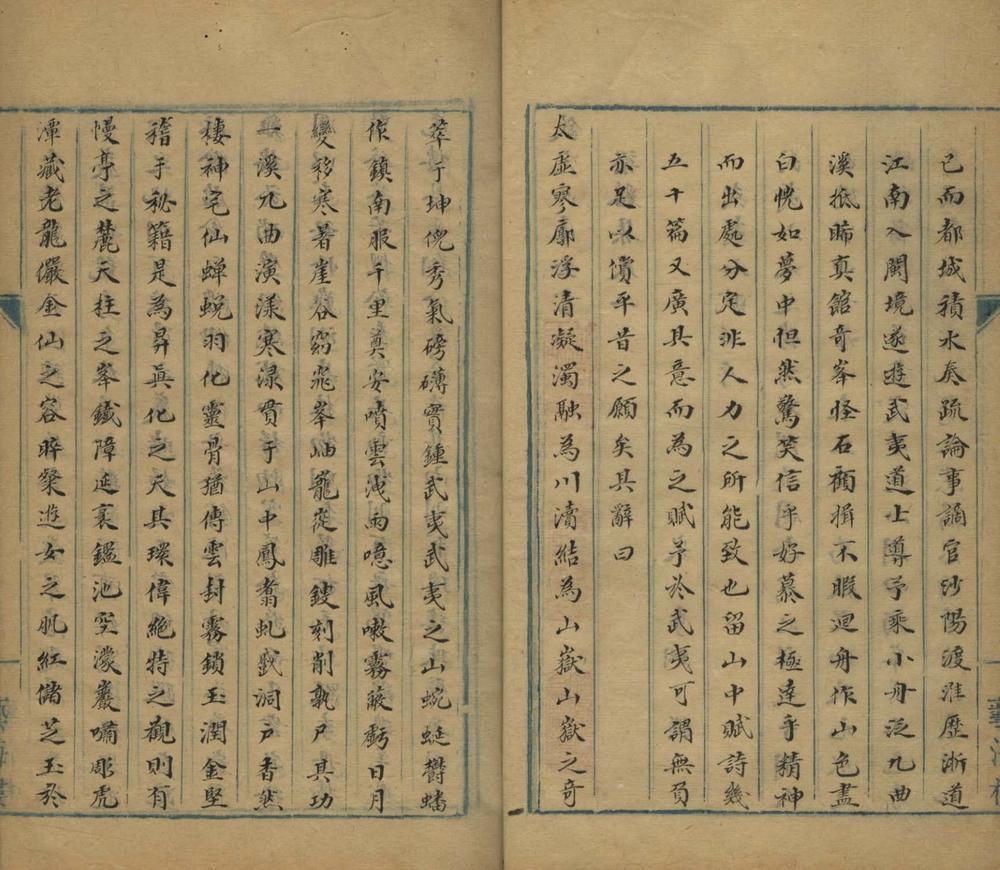 已而都城積水奏疏論事謫官沙陽渡淮歷浙道
江南入閩境遂遊武夷道士導予乘小舟泛九曲
溪抵晞真館奇峯怪石顧揖不暇迴舟作山色盡
白愧如夢中怛然驚笑信乎好慕之極達乎精神
而出處分定非人力之所能致也留山中賦詩幾
五十篇又廣其意而為之賦予於武夷可謂無負
亦足以償平昔之願矣其辭曰
太虛寥廓浮清凝濁融為川瀆結為山嶽山嶽之奇
萃于坤倪秀氣磅礴實鍾武夷武夷之山蜿蜒欝蟠
作鎮南服千里奠安噴雲洩雨噫風嗽霧蔽虧日月
變移寒暑崖谷窈窕峯岫巃嵸雕鎪刻削孰尸其功
一溪九曲演漾寒渌貫于山中鳳翥虬蟄洞户香然
棲神宅仙蟬蜕羽化靈骨猶傳雲封霧鎖玉潤金堅
稽于秘籍是為昇眞化之天其瓌偉絶特之觀則有
慢亭之麓天柱之峯鐵障延袤鑑池空濛巖嘯彫虎
潭藏老龍儼金仙之容晬粲遊女之肌紅儲芝玉於